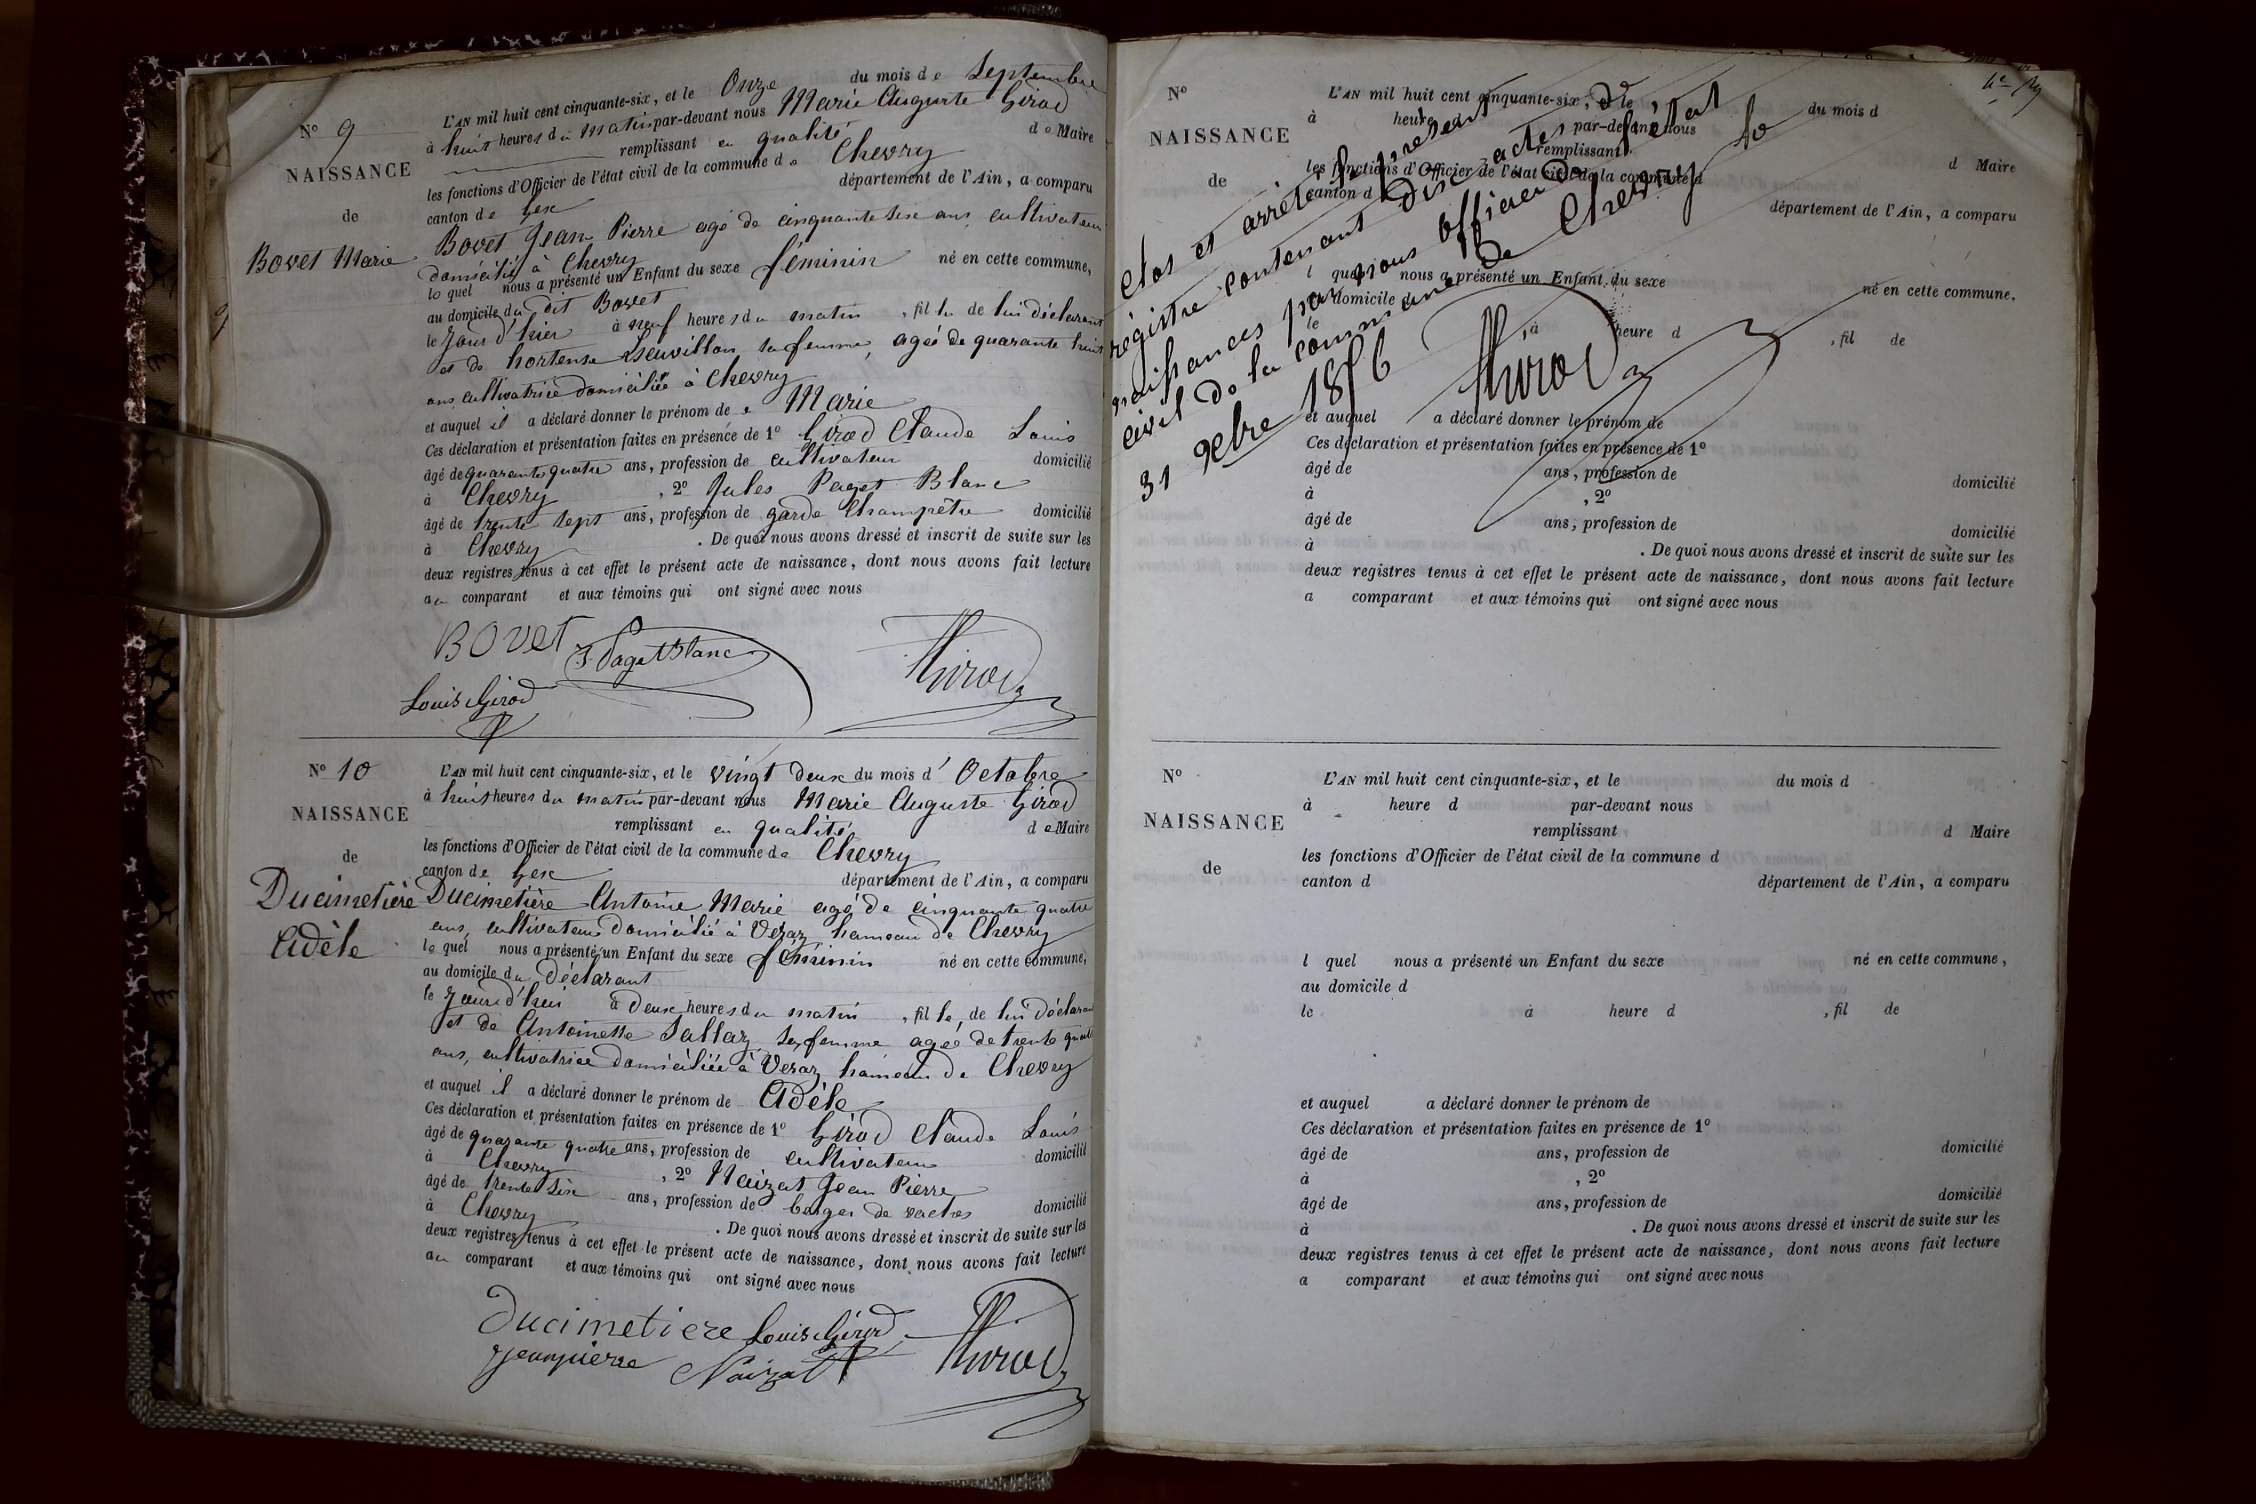 L'AN mil huit cent cinquante-six, et le Onze du mois de Septembre
No 9
à huit heures du matin par-devant nous Marie Auguste Girod
remplissant en qualité de Maire
NAISSANCE
les fonctions d'Officier de l'état civil de la commune de Chevry
canton de Gex département de l'Ain, a comparu
de
Bovet Marie
Bovet Jean Pierre agé de cinquante six ans cultivateur
domicilié à Chevry
le quel nous a présenté un Enfant du sexe féminin né en cette commune,
au domicile du dit Bovet
le jour d'hier à neuf heures du matin, fille de lui déclarant
et de hortense sa femme, agée de quarante huit
ans cultivatrice domiciliée à Chevry
et auquel il a déclaré donner le prénom de Marie
Ces déclaration et présentation faites en présence de 1o Girod Claude Louis
âgé de quarante quatre ans, profession de cultivateur domicilié
à Chevry, 2o Jules Paget Blanc
âgé de trente sept ans, profession de garde Champêtre domicilié
à Chevry. De quoi nous avons dressé et inscrit de suite sur les
deux registres tenus à cet effet le présent acte de naissance, dont nous avons fait lecture
au comparant et aux témoins qui ont signé avec nous
Bovet J. Paget Blanc Girod
Louis Girod
No 10
L'AN mil huit cent cinquante-six, et le vingt deux du mois d'Octobre
à huit heures du matin par-devant nous Marie Auguste Girod
NAISSANCE
remplissant en qualité de Maire
les fonctions d'Officier de l'état civil de la commune de Chevry
de
canton de Gex département de l'Ain, a comparu
Ducimetière
Adèle
Ducimetière Antoine Marie agé de cinquante quatre
ans, cultivateur domicilié à Veraz hameau de Chevry
le quel nous a présenté un Enfant du sexe féminin né en cette commune,
au domicile du Déclarant
le jour d'hui à deux heures du matin, fille de lui déclarant
et de Antoinette Sallaz sa femme agée de trente quatre
ans, cultivatrice domiciliée à Veraz hameau de Chevry
et auquel il a déclaré donner le prénom de Adèle
Ces déclaration et présentation faites en présence de 1o Girod Claude Louis
âgé de quarante quatre ans, profession de cultivateur domicilié
à Chevry, 2o Naizat Jean Pierre
âgé de trente six ans, profession de berger de vaches domicilié
à Chevry. De quoi nous avons dressé et inscrit de suite sur les
deux registres tenus à cet effet le présent acte de naissance, dont nous avons fait lecture
au comparant et aux témoins qui ont signé avec nous
Ducimetiere Louis Girod Girod
Jeanpierre Naizat
No
L'AN mil huit cent cinquante-six, et le du mois d
à heure d par-devant nous
NAISSANCE
remplissant d Maire
les fonctions d'Officier de l'état civil de la commune d
de
canton d département de l'Ain, a comparu
l quel nous a présenté un Enfant du sexe né en cette commune,
au domicile d
le à heure d, fil de
et auquel a déclaré donner le prénom de
Ces déclaration et présentation faites en présence de 1o
âgé de ans, profession de domicilié
à, 2o
âgé de ans, profession de domicilié
à. De quoi nous avons dressé et inscrit de suite sur les
deux registres tenus à cet effet le présent acte de naissance, dont nous avons fait lecture
a comparant et aux témoins qui ont signé avec nous
Clos et arrêté le présent
régistre contenant dix actes de
naissances par nous officier de l'état
civil de la commune de Chevry le
31 Xbre 1856
Girod
No
L'AN mil huit cent cinquante-six, et le du mois d
à heure d par-devant nous
NAISSANCE
remplissant d Maire
les fonctions d'Officier de l'état civil de la commune d
de
canton d département de l'Ain, a comparu
l quel nous a présenté un Enfant du sexe né en cette commune,
au domicile d
le à heure d, fil de
et auquel a déclaré donner le prénom de
Ces déclaration et présentation faites en présence de 1o
âgé de ans, profession de domicilié
à, 2o
âgé de ans, profession de domicilié
à. De quoi nous avons dressé et inscrit de suite sur les
deux registres tenus à cet effet le présent acte de naissance, dont nous avons fait lecture
a comparant et aux témoins qui ont signé avec nous